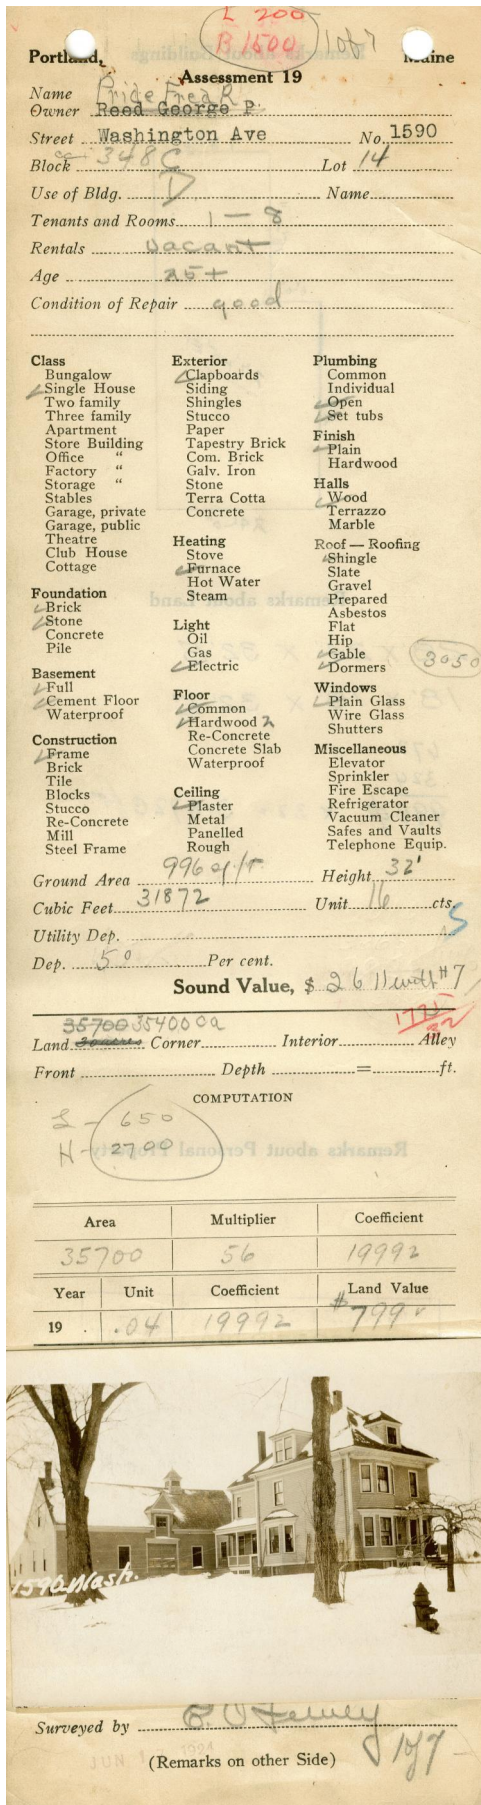 L 200
B 1500
1 of 7
Portland, Maine
Assessment 19
Name Pride Fred R
Owner Reed George P.
Street Washington Ave No. 1590
Block 348C Lot 14
Use of Bldg. D Name
Tenants and Rooms 1 — 8
Rentals vacant
Age 25+
Condition of Repair good
Class
Bungalow
Single House
Two family
Three family
Apartment
Store Building
Office "
Factory "
Storage "
Stables
Garage, private
Garage, public
Theatre
Club House
Cottage
Foundation
Brick
Stone
Concrete
Pile
Basement
Full
Cement Floor
Waterproof
Construction
Frame
Brick
Tile
Blocks
Stucco
Re-Concrete
Mill
Steel Frame
Exterior
Clapboards
Siding
Shingles
Stucco
Paper
Tapestry Brick
Com. Brick
Galv. Iron
Stone
Terra Cotta
Concrete
Heating
Stove
Furnace
Hot Water
Steam
Light
Oil
Gas
Electric
Floor
Common
Hardwood 2
Re-Concrete
Concrete Slab
Waterproof
Ceiling
Plaster
Metal
Panelled
Rough
Plumbing
Common
Individual
Open
Set tubs
Finish
Plain
Hardwood
Halls
Wood
Terrazzo
Marble
Roof — Roofing
Shingle
Slate
Gravel
Prepared
Asbestos
Flat
Hip
Gable
Dormers
3050
Windows
Plain Glass
Wire Glass
Shutters
Miscellaneous
Elevator
Sprinkler
Fire Escape
Refrigerator
Vacuum Cleaner
Safes and Vaults
Telephone Equip.
Ground Area 996 Height 32'
Cubic Feet 31872 Unit 16 cts.
Utility Dep.
Dep. 50 Per cent.
Sound Value, $ 26 #7
35700
Land 30 acres Corner Interior Alley
Front Depth = ft.
COMPUTATION
L - 650
H - 2700
Area Multiplier Coefficient
35700 56 19992
Year Unit Coefficient Land Value
19 . .04 19992 $799
1590 Wash.
Surveyed by
JUN
(Remarks on other Side)
1 of 7